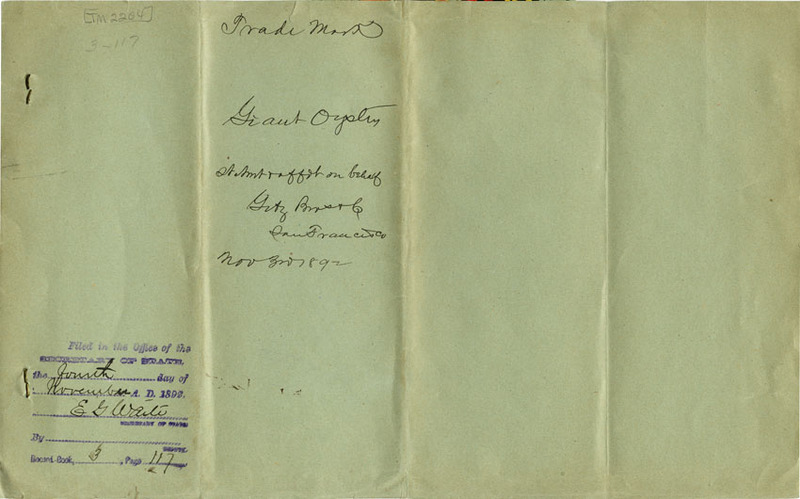 [TM 2264]
3-117
Trade Mark
Giant Oysters
Statmt & affdt on behalf
Getz Bros & Co
San Francisco
Nov 3rd 1892
Filed in the Office of the
SECRETARY OF STATE,
the Fourth day of
November A. D. 1892.
E G Waite
SECRETARY OF STATE
By
DEPUTY.
Record Book, 3, Page 117